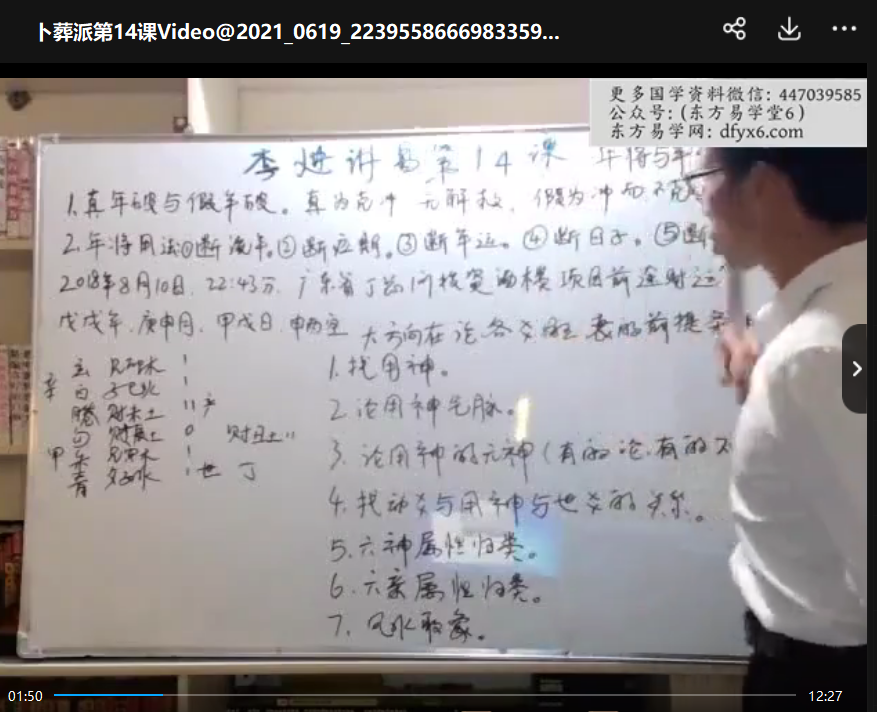 卜葬派第14课Video@2021_0619_2239558666983359...
更多国学资料微信: 447039585
公众号: (东方易学堂6)
东方易学网: dfyx6.com
李 讲易第14课 年将与年
1.真年破与假年破。真为克冲 无解救, 假为冲而不克
2.年将用法①断流年。②断应期。③断年运。④断日子。⑤断
2018年8月10日. 22:43分, 广东省丁 问投资 项目前途财运
戊戌年. 庚申月. 甲戌日. 申酉空 大方向在论各爻旺衰的前提
玄 兄卯木 、
辛 白 子巳火 、
螣 财未土 〃
勾 财辰土 o 财丑土〃
甲 朱 兄寅木 、
青 父子水 、世 丁
1.找用神。
2.论用神气脉。
3.论用神的元神(有的论.有的不
4.找动爻与用神与世爻的关系。
5.六神属性归类。
6.六亲属性归类。
7.风水取象。
01:50
12:27